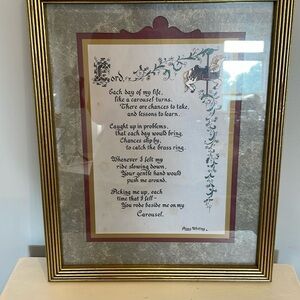 Lord,
Each day of my life,
like a carousel turns.
There are chances to take,
and lessons to learn.
Caught up in problems,
that each day would bring.
Chances slip by,
to catch the brass ring.
Whenever I felt my
ride slowing down,
Your gentle hand would
push me around.
Picking me up, each
time that I fell-
You rode beside me on my
Carousel.
Peggy Whiting